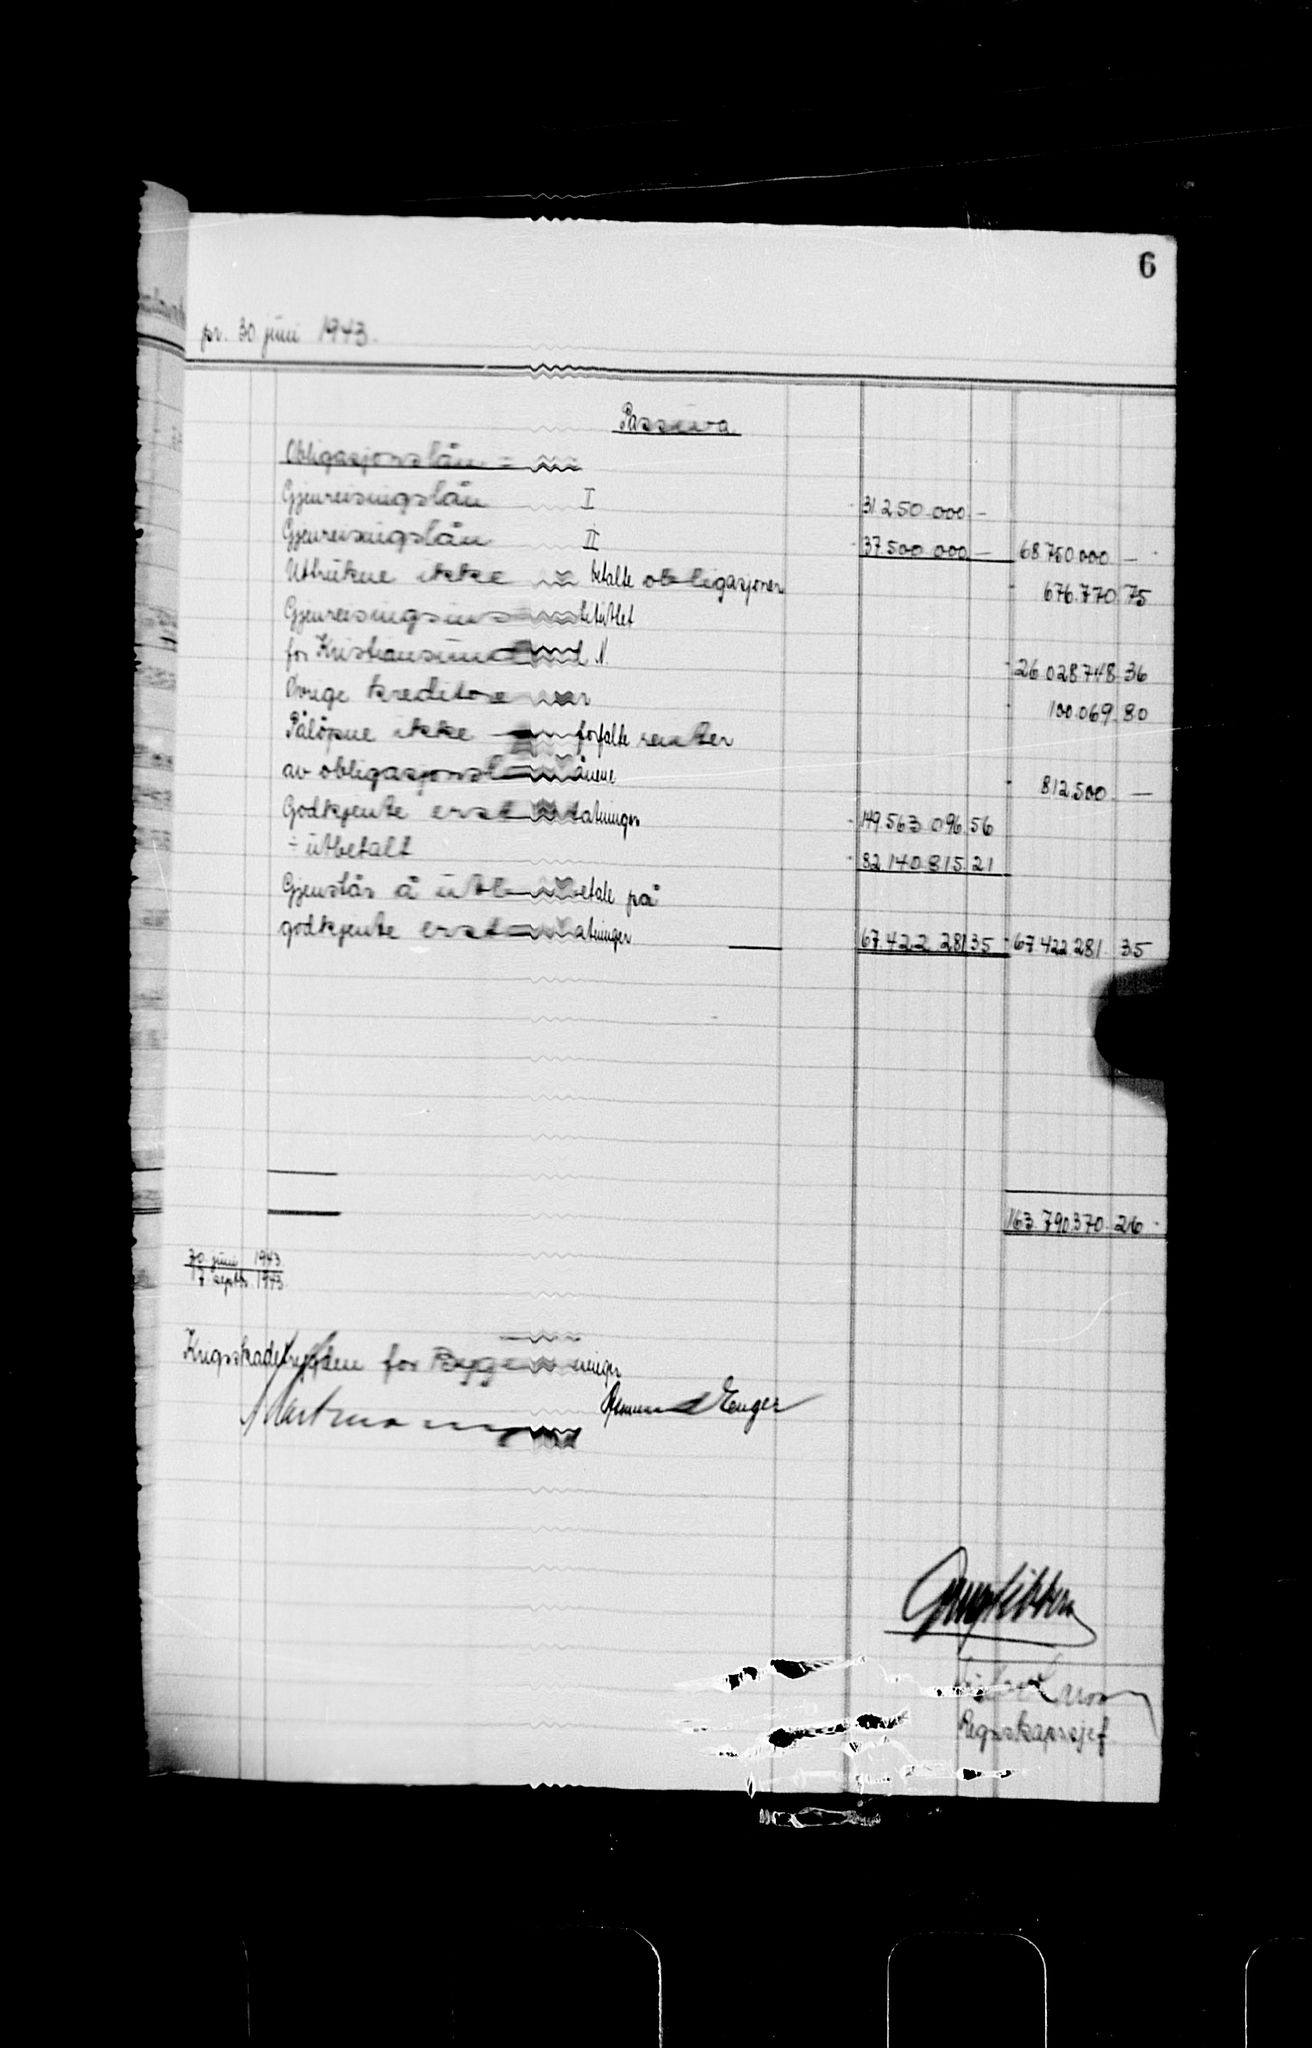 6
pr. 30. juni 1943.
Passiva
Obligasjonslån
Gjenreisningslån I 31.250.000 —
Gjenreisningslån II 37.500.000 — 68.750.000 —
Uttrukne ikke betalte obligasjoner 676.770.75
Gjenreisningsinstituttet
for Kristiansund N. 26.028.748.36
Øvrige kreditorer 100.069.80
Påløpne ikke forfalte renter
av obligasjonslånene 812.500. —
Godkjente erstatninger 149.563.096.56
÷ utbetalt 82.140.815.21
Gjenstår å utbetale på
godkjente erstatninger 67.422.281.35 67.422.281.35
163.790.370.26
30. juni 1943
17. septbr. 1943
Krigsskadetrygden for Bygninger
Enger
Regnskapssjef